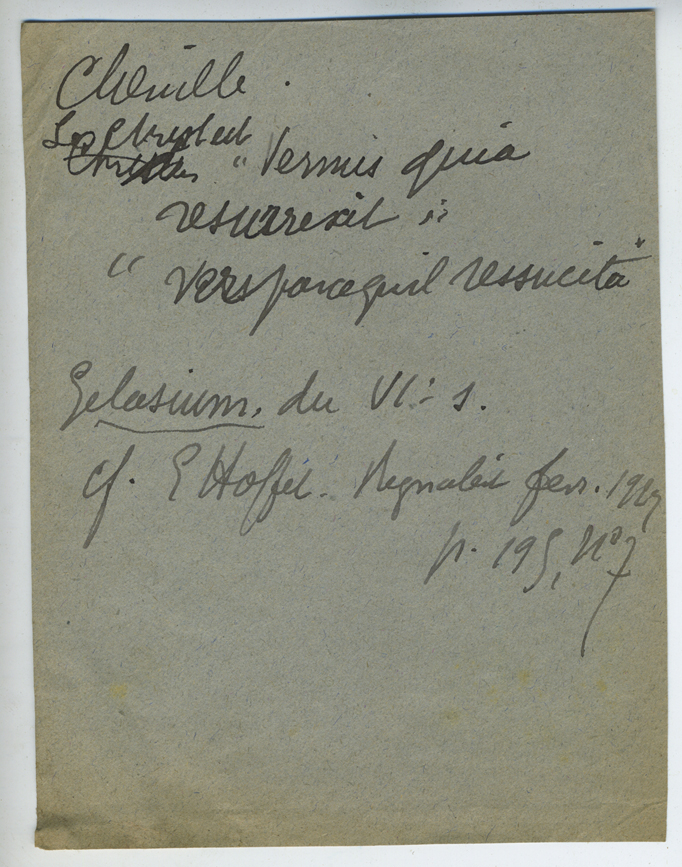 Chenille.
Le Christ est
Christus " Vermis quia
resurrexit "
" Vers parcequ'il ressucita "
Gelasium. du VIe s.
cf. E Hoffet. Regnabit fevr.
p. 195, N° 7